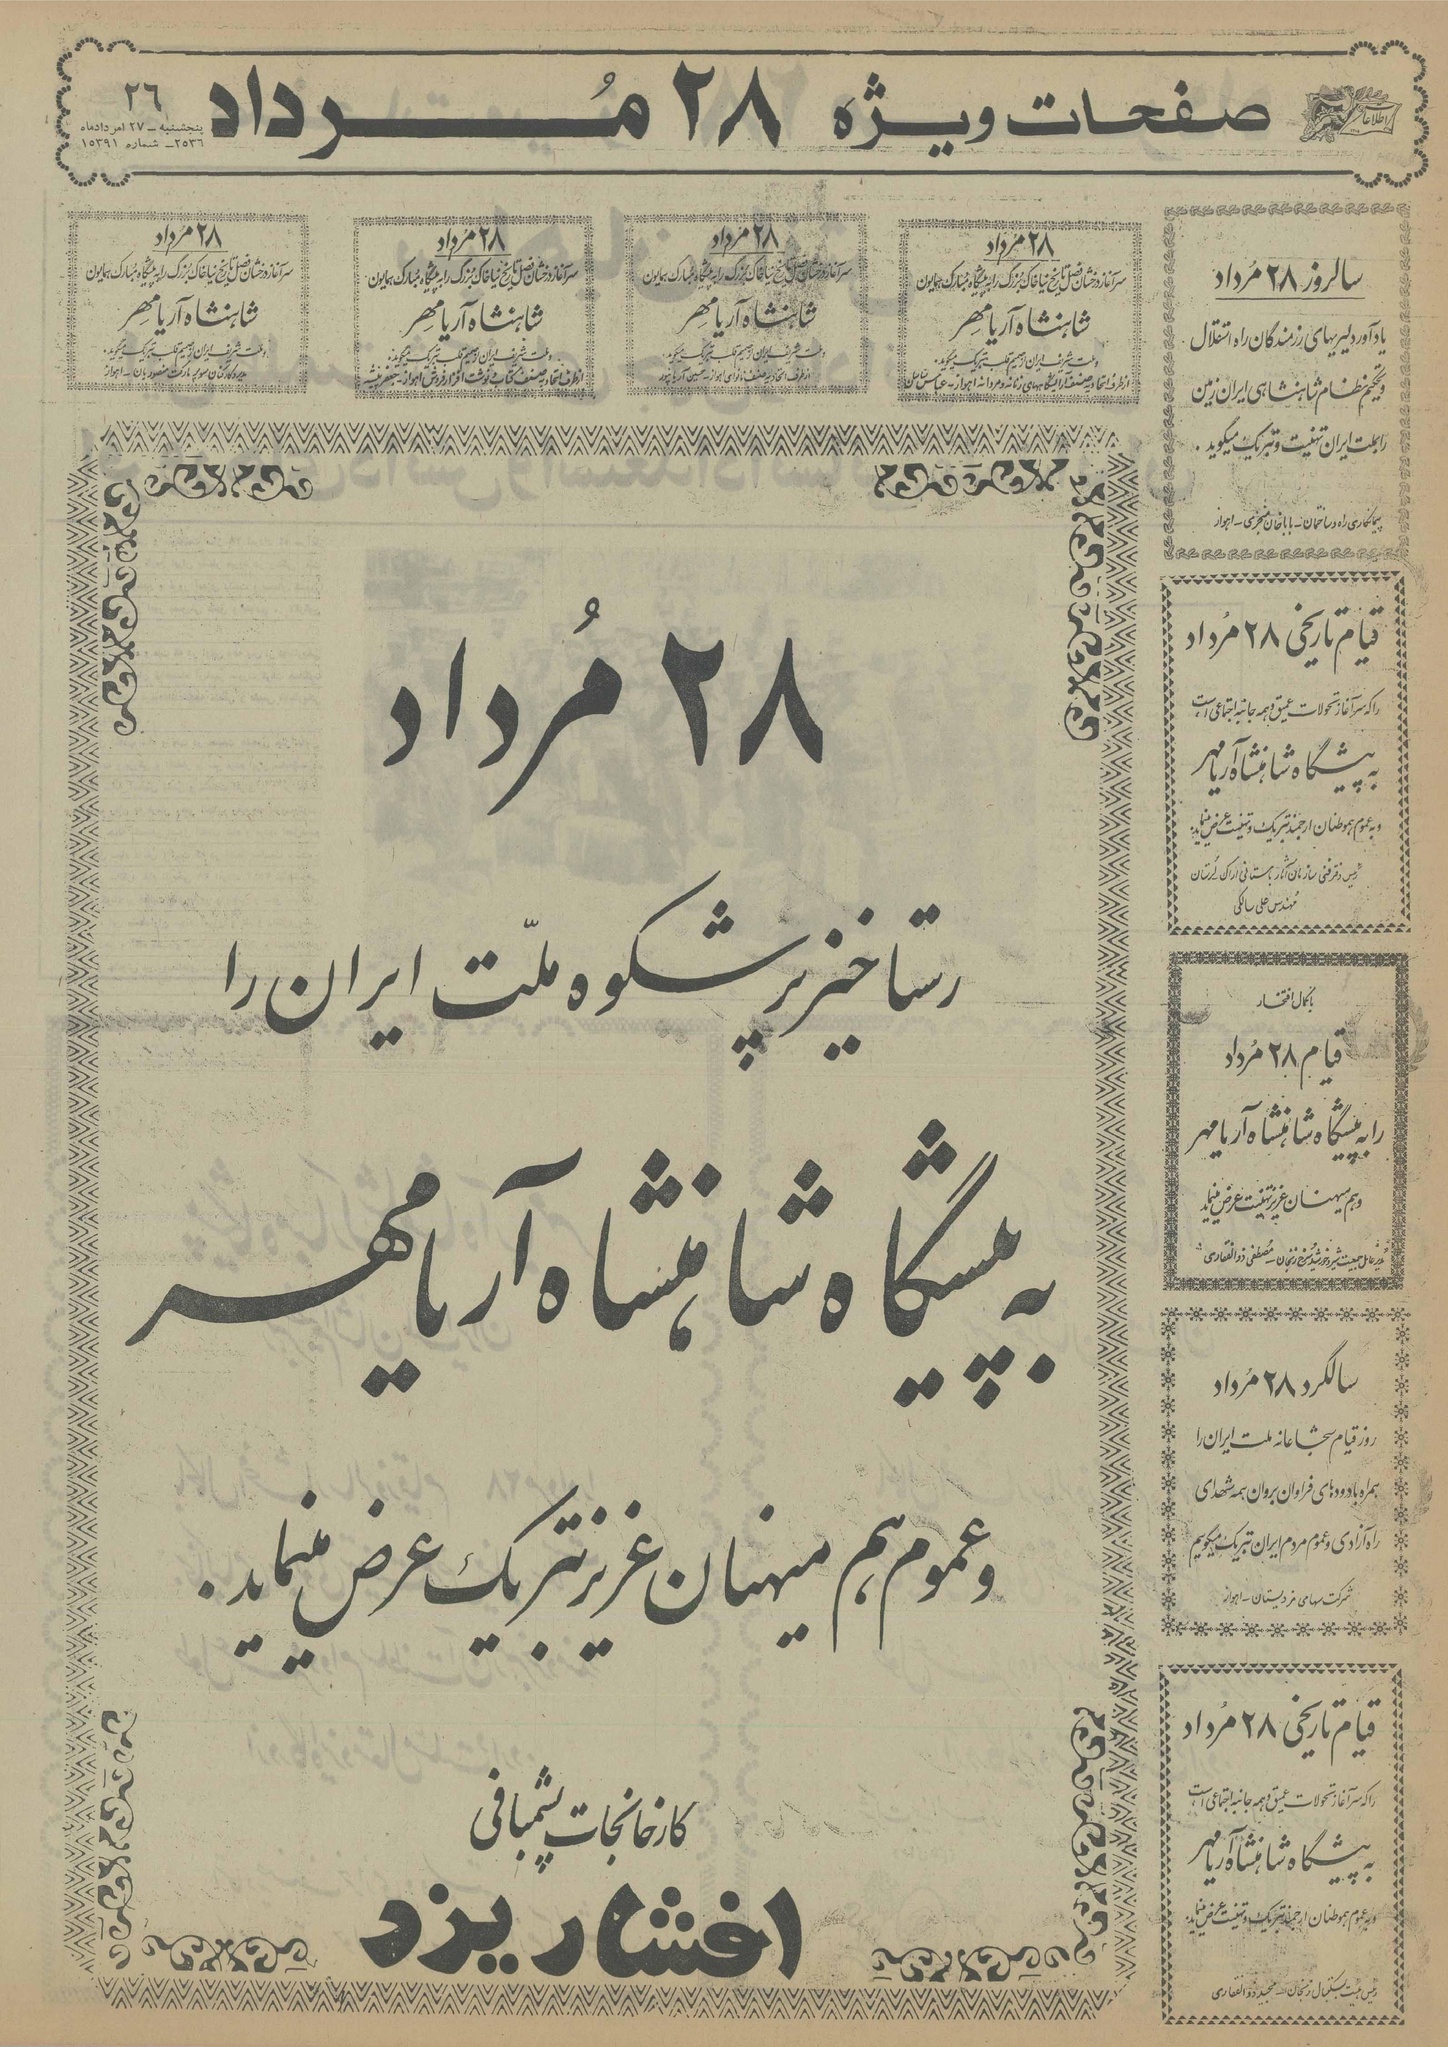 اطلاعات
صفحات ویژه ۲۸ مُرداد
۲۶
پنجشنبه - ۲۷ امردادماه
۲۵۳۶ - شماره ۱۵۳۹۱
سالروز ۲۸ مُرداد
یادآور دلیریهای رزمندگان راه استقلال
و تحکیم نظام شاهنشاهی ایران زمین
را بملت ایران تهنیت و تبریک میگوید.
پیمانکاری راه و ساختمان - باباخان - اهواز
۲۸ مرداد
سرآغاز درخشان فصل تاریخ نیاخاک بزرگ را به پیشگاه مبارک همایون
شاهنشاه آریامهر
و ملت شریف ایران از صمیم قلب تبریک میگوید:
از طرف اتحادیه صنف آرایشگاههای زنانه و مردانه اهواز - عباس
۲۸ مرداد
سرآغاز درخشان فصل تاریخ نیاخاک بزرگ را به پیشگاه مبارک همایون
شاهنشاه آریامهر
و ملت شریف ایران از صمیم قلب تبریک میگوید:
از طرف اتحادیه صنف نانوای اهواز - حسین آریاپور
۲۸ مرداد
سرآغاز درخشان فصل تاریخ نیاخاک بزرگ را به پیشگاه مبارک همایون
شاهنشاه آریامهر
و ملت شریف ایران از صمیم قلب تبریک میگوید:
از طرف اتحادیه صنف کتاب و نوشت افزار فروش اهواز
۲۸ مرداد
سرآغاز درخشان فصل تاریخ نیاخاک بزرگ را به پیشگاه مبارک همایون
شاهنشاه آریامهر
و ملت شریف ایران از صمیم قلب تبریک میگوید:
مدیر و کارکنان سوپر مارکت منصوریان - اهواز
۲۸ مُرداد
رستاخیز پرشکوه ملّت ایران را
به پیشگاه شاهنشاه آریامهر
و عموم هم میهنان عزیز تبریک عرض مینماید.
کارخانجات پشمبافی
افشار یزد
قیام تاریخی ۲۸ مُرداد
را که سرآغاز تحولات عمیق و همه جانبه اجتماعی است
به پیشگاه شاهنشاه آریامهر
و به عموم هموطنان ارجمند تبریک و تهنیت عرض مینماید:
رئیس دفتر فنی سازمان آثار باستانی اراک لرستان
مهندس علی سالکی
با کمال افتخار
قیام ۲۸ مُرداد
را به پیشگاه شاهنشاه آریامهر
و هم میهنان عزیز تهنیت عرض مینماید
مدیر عامل جمعیت شیر و خورشید سرخ زنجان - مصطفی ذوالفقاری
سالگرد ۲۸ مُرداد
روز قیام شجاعانه ملت ایران را
همراه با درودهای فراوان بروان همه شهدای
راه آزادی و عموم مردم ایران تبریک میگوییم
شرکت سهامی مزدیستان - اهواز
قیام تاریخی ۲۸ مُرداد
را که سرآغاز تحولات عمیق و همه جانبه اجتماعی است
به پیشگاه شاهنشاه آریامهر
و به عموم هموطنان ارجمند تبریک و تهنیت عرض مینماید:
رئیس هیئت بسکتبال زنجان - مجید ذوالفقاری